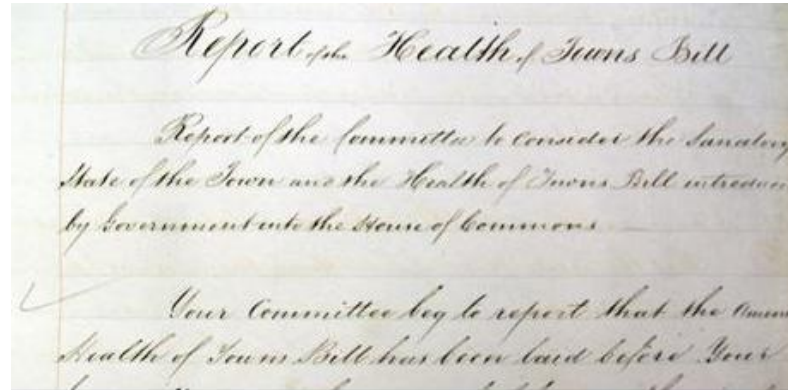 Report of the Health of Towns Bill
Report of the Committee to consider the Sanatory
State of the Town and the Health of Towns Bill introduc
by Government into the House of Commons
Your Committee beg to report that the Amen
Health of Towns Bill has been laid before Your